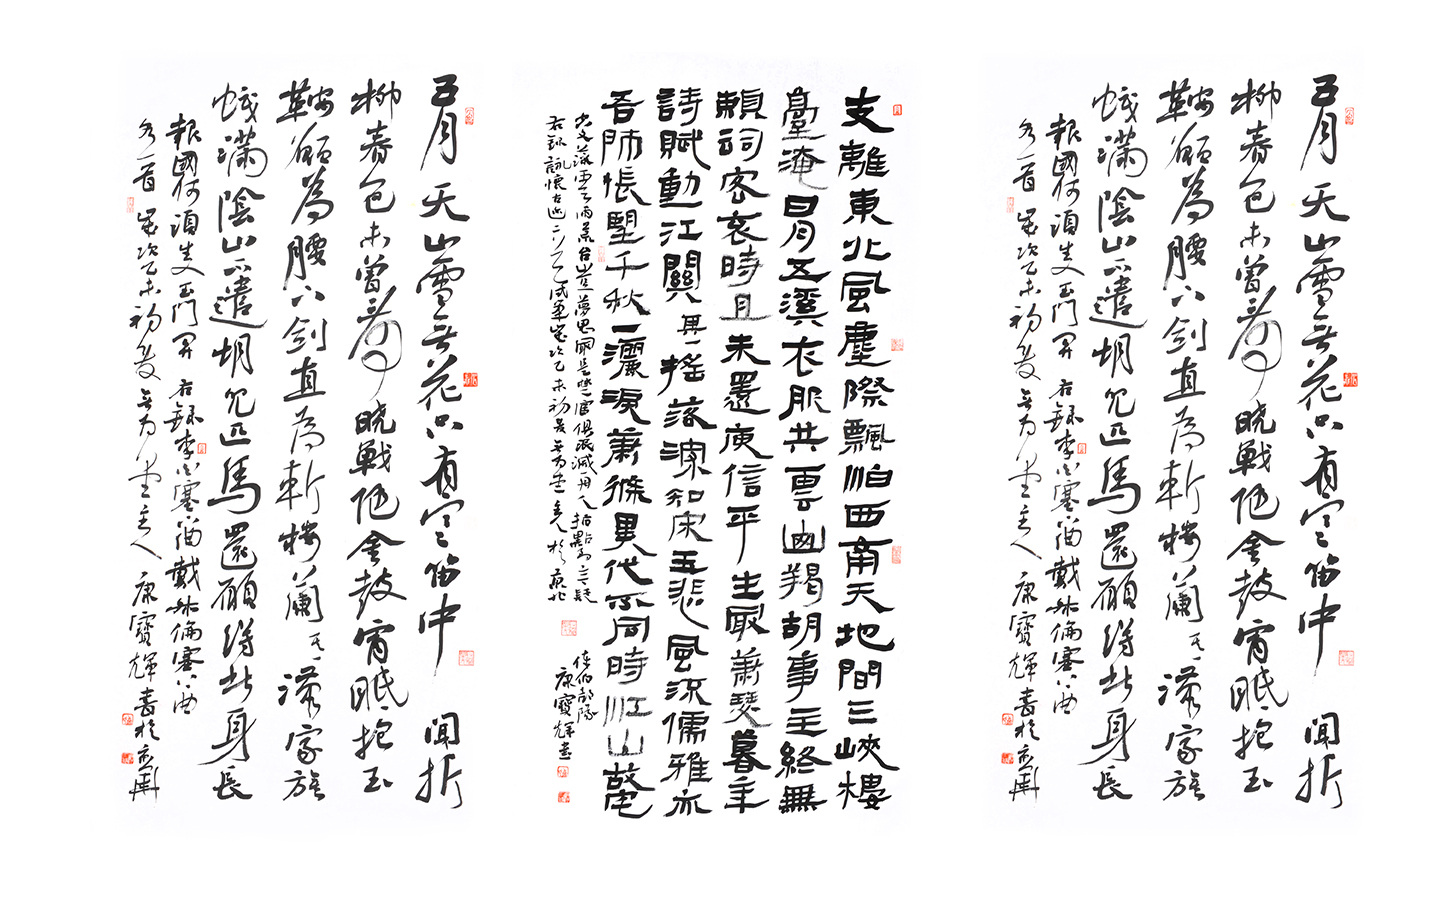 五月天山雪無花只有寒笛中聞折
柳春色未曾看曉戰随金鼓宵眠抱玉
鞍願為腰下剑直為斬樓蘭其一漢家旌
幟滿陰山不遣胡兒匹馬還願得此身長
報國何須生入玉門関右録李白塞下曲戴叔倫塞下曲
各一首歲次乙未初夏無為堂主人康寶輝書於京華
支離東北風塵際飄泊西南天地間三峽樓
臺淹日月五溪衣服共雲山羯胡事主終無
賴詞客哀時且未還庾信平生最蕭瑟暮年
詩賦動江關其一搖落深知宋玉悲風流儒雅亦
吾師悵望千秋一灑淚蕭條異代不同時江山故宅
空文藻雲雨荒台豈夢思最是楚宮俱泯滅舟人指點到今疑
右録詠懷古迹二首歲次乙未初夏無為堂主人於京北
康寶輝書
五月天山雪無花只有寒笛中聞折
柳春色未曾看曉戰随金鼓宵眠抱玉
鞍願為腰下剑直為斬樓蘭其一漢家旌
幟滿陰山不遣胡兒匹馬還願得此身長
報國何須生入玉門関右録李白塞下曲戴叔倫塞下曲
各一首歲次乙未初夏無為堂主人康寶輝書於京華